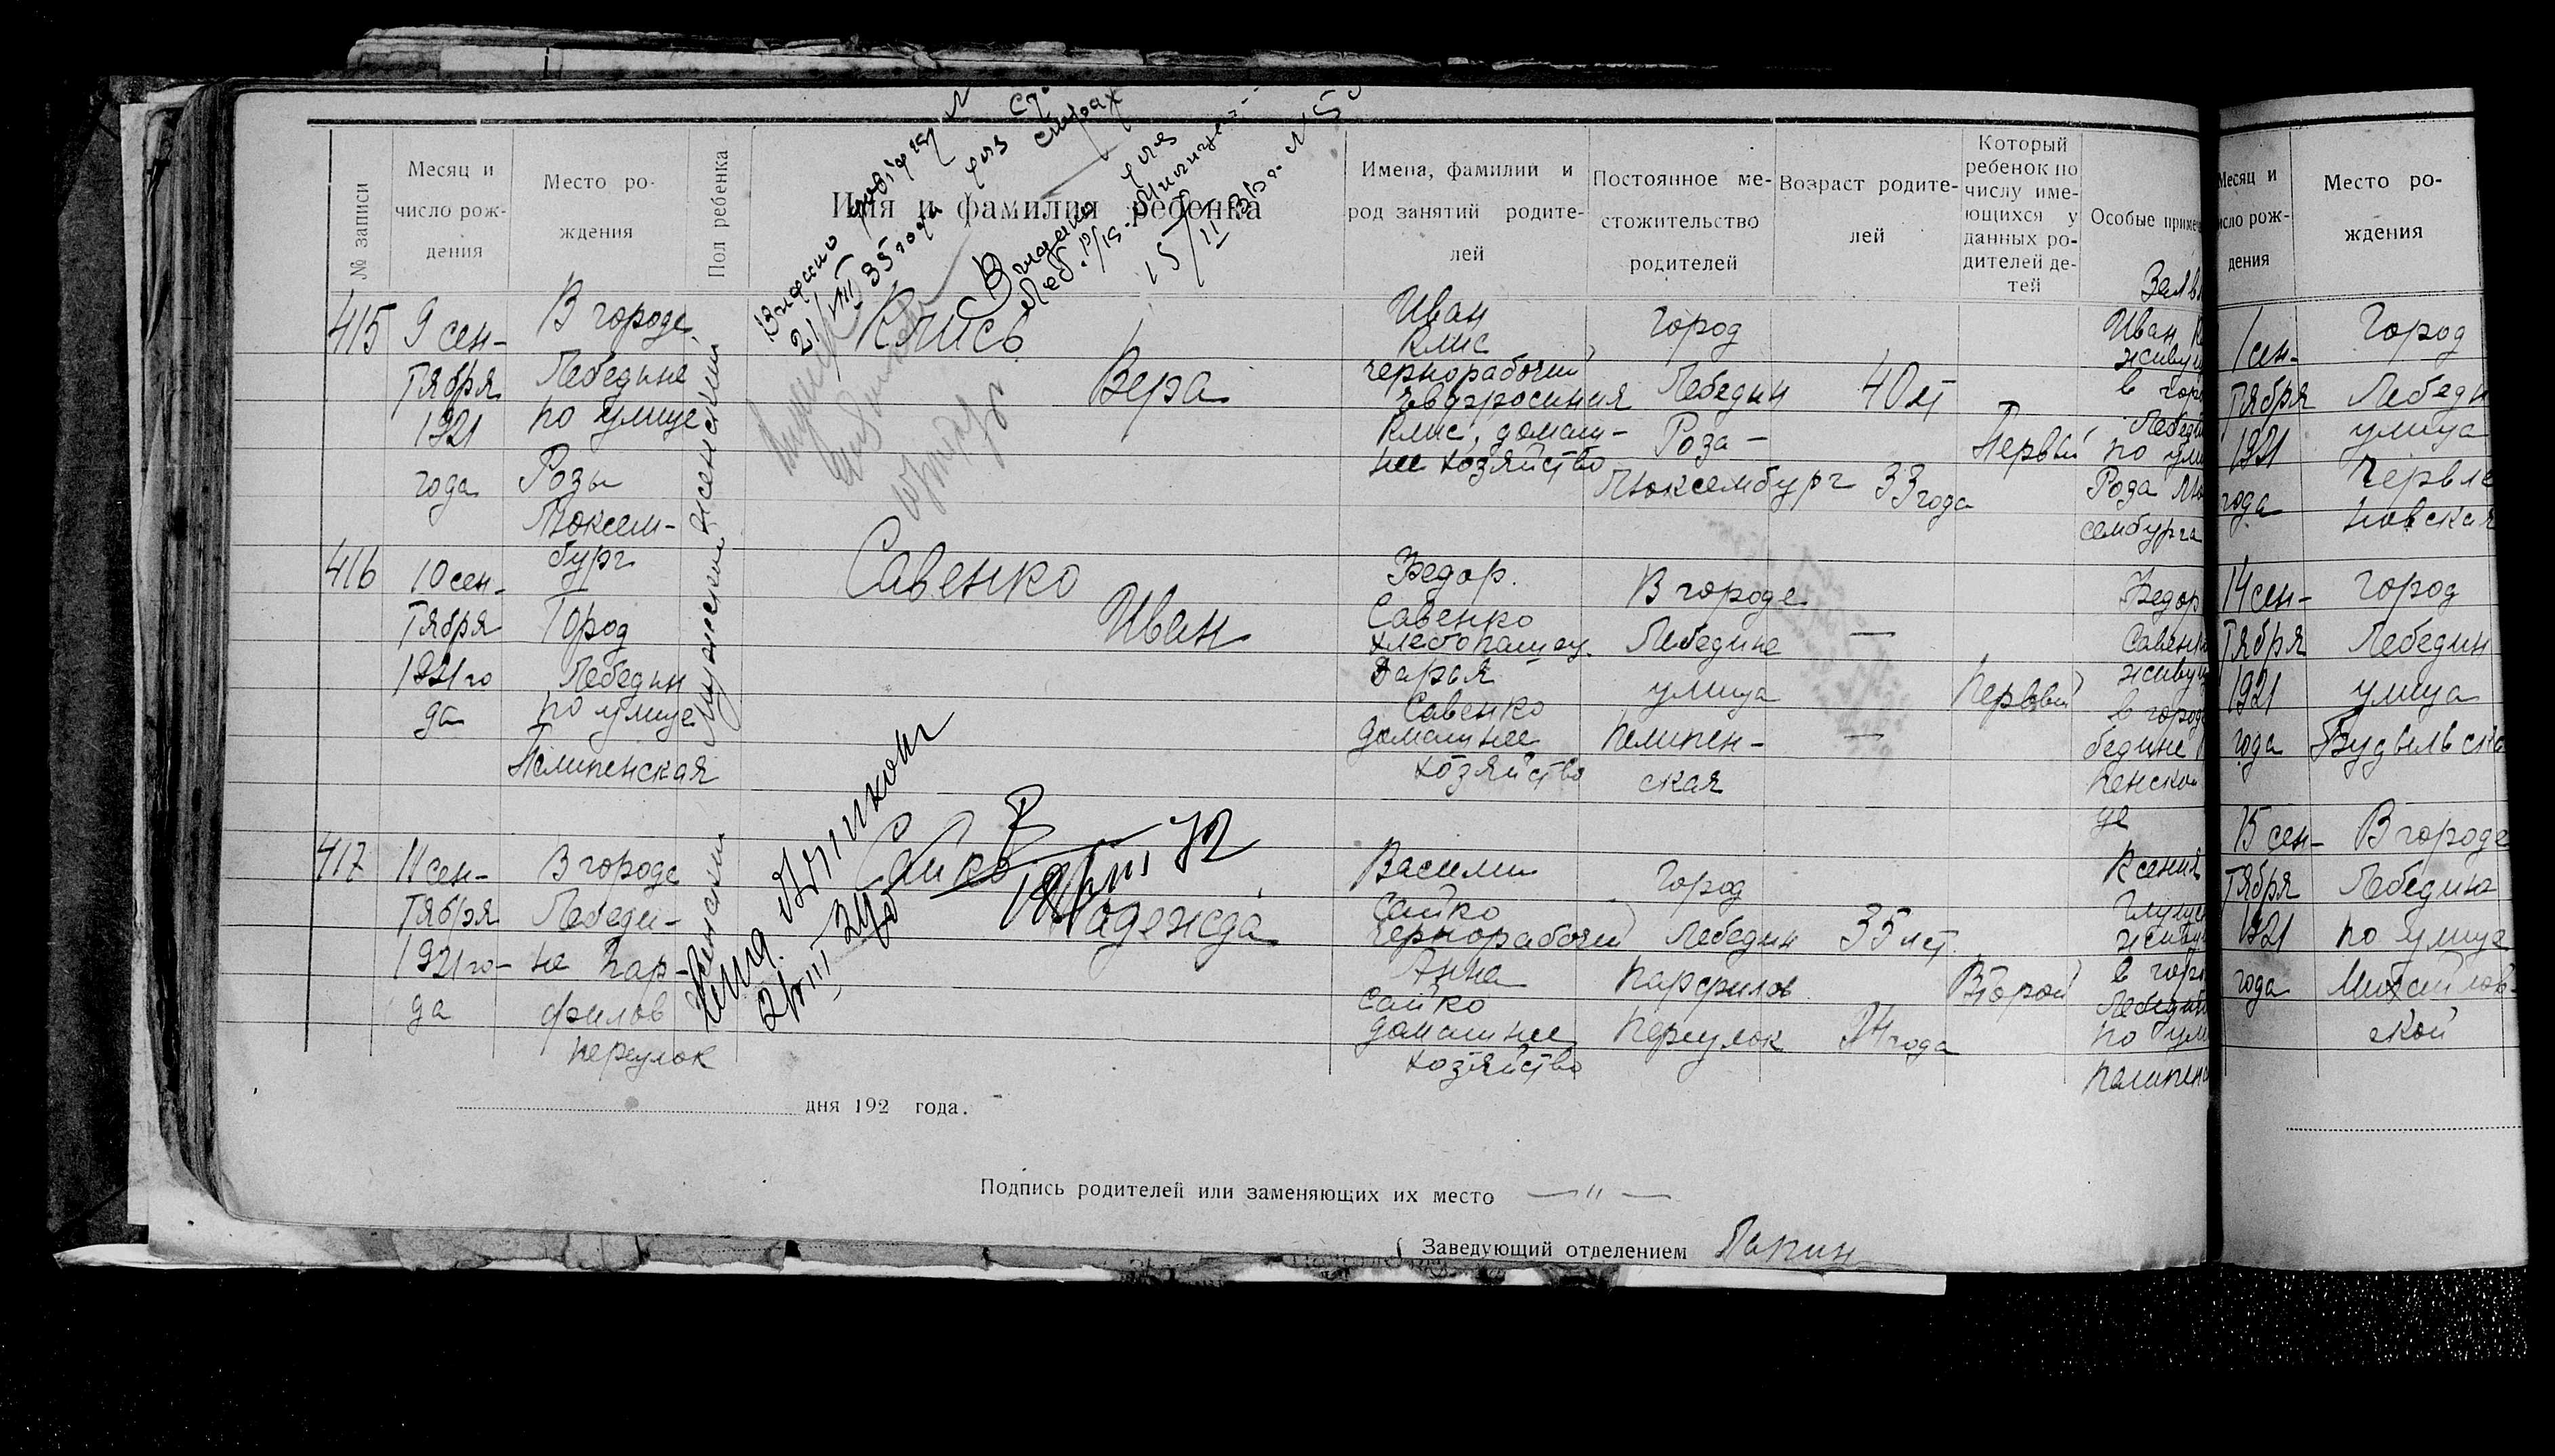 № записи
Месяц и
число рож-
дения
Место ро-
ждения
Пол ребенка
Имя и фамилия ребенка
Имена, фамилии и
род занятий родите-
лей
Постоянное ме-
стожительство
родителей
Возраст родите-
лей
Который
ребенок по
числу име-
ющихся у
данных ро-
дителей де-
тей
Особые примеч
415
9 сен-
тября
1921
года
В городе
Лебедине
по улице
Розы
Люксем-
бург
женский
21/VIII 35 года
Видано
15/II
Клись
Вера
Иван
Клис
чернорабочий
Клис, домаш-
нее хозяйство
Город
Лебедин
Роза-
Люксембург
40 лт
33 года
Первый
Заяв
Иван К
живущ
в горо
Лебеди
по ули
Роза Лю
сембурга
416
10 сен-
тября
1921 го
да
Город
Лебедин
по улице
Пелипенская
Мужский
Савенко
Иван
Федор.
Савенко
хлебопашец.
Дарья
Савенко
домашнее
хозяйство
В городе
Лебедине
улица
Пелипен-
ская
—
—
Первый
Федор
Савенк
живущ
в городе
бедине
пенской
це
417
11 сен-
тября
1921 го-
да
В городе
Лебеди-
не Пар-
филов
переулок
Женский
Сайко
Надежда
Василий
Сайко
чернорабочий
Анна
Сайко
домашнее
хозяйство
Город
Лебедин
Парфилов
переулок
35 лет
24 года
Второй
Ксения
живущ
в горо
Лебедин
по ули
Пелипен
дня 192 года.
Подпись родителей или заменяющих их место — " —
Заведующий отделением
Месяц и
число рож-
дения
Место ро-
ждения
1 сен-
тября
1921
года
Город
Лебеди
улица
Червле
новская
14 сен-
тября
1921
года
Город
Лебедин
улица
15 сен-
тября
1921
года
В городе
Лебедине
по улице
Михайлов-
ской